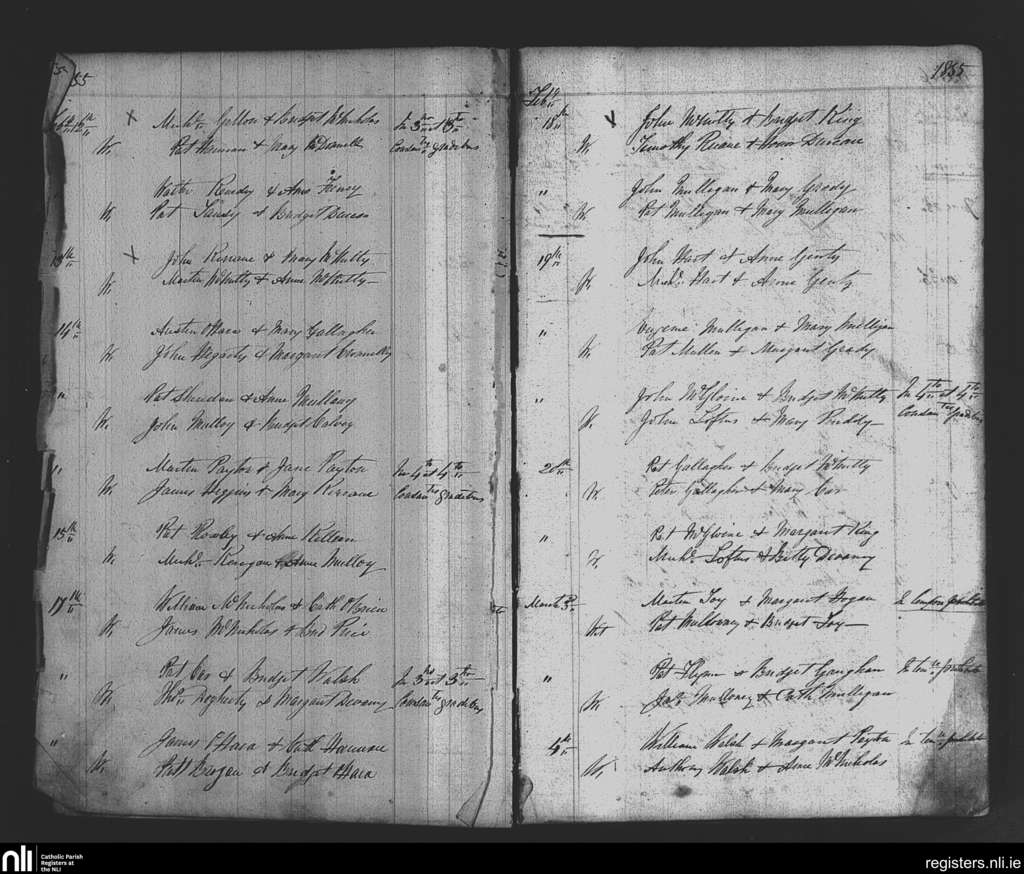 55
12th X Michl Gallon & Bridget McNicholas In 3o et 3o
W. Pat & Mary McDonnell Consan. gradibus
Walter & Anne Feeney
W. Pat & Bridget
13th X John Kirrane & Mary McNulty
W. Martin McNulty & Anne McNulty
14th Austin O'Hara & Mary Gallagher
W. John Hegarty & Margaret Connelly
" Pat Sheridan & Anne Mullany
W. John Mulloy & Bridget Calvey
" Martin Payton & Jane Payton In 4th et 4th
W. James Higgins & Mary Kirrane Consan gradibus
15th Pat Rowley & Anne Killeen
W. Michl Ronegan & Anne Mulloy
17th William McNicholas & Cath O'Brien
W. James McNicholas & Brd Price
" Pat Cox & Bridget Walsh In 3 et 3
W. Thos Dogherty & Margaret Devany Consan gradibus
" James O'Hara & Cath
W. Patt Brogan & Bridget O'Hara
1855
Feb
18th X John McNulty & Bridget King
W. Timothy Ruane & Honor Duncan
" John Mulligan & Mary Grady
W. Pat Mulligan & Mary Mulligan
19th John Hart et Anne Genty
W. Michl Hart & Anne Genty
" Eugene Mulligan & Mary Mulligan
W. Pat Mullen & Margaret Grady
" John McGloine & Bridget McNulty In 4to et 4to
W. John Loftus & Mary Ruddy Consan gradibus
20th Pat Gallagher & Bridget McNulty
W. Peter Gallagher & Mary Cox
" Pat McGloine & Margaret King
W. Michl Loftus & Betty Devany
March 3 Martin Joy & Margaret Hogan
Wt Pat Mulloney & Bridget Joy
" Pat Flynn & Bridget Gaughan
W. Mulloney & Cath Mulligan
4th William Walsh & Margaret Payton
W. Anthony Walsh & Anne McNicholas
nli Catholic Parish
Registers at
the NLI
registers.nli.ie